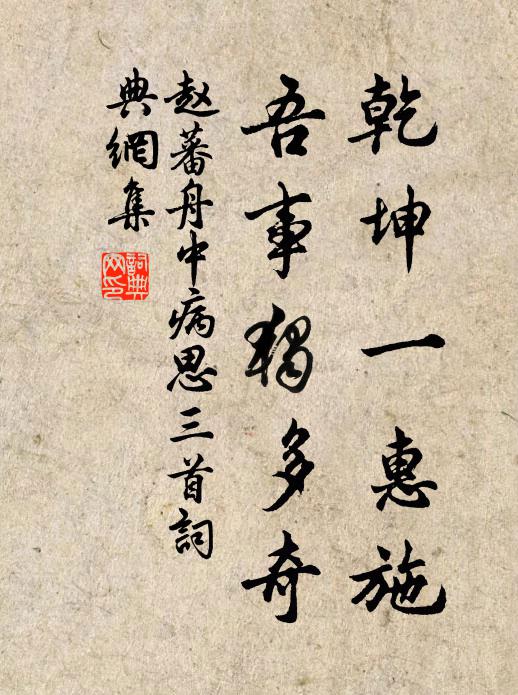 乾坤一惠施
吾事獨多奇
赵蕃舟中病思三首詞
典網集
詞典
网印